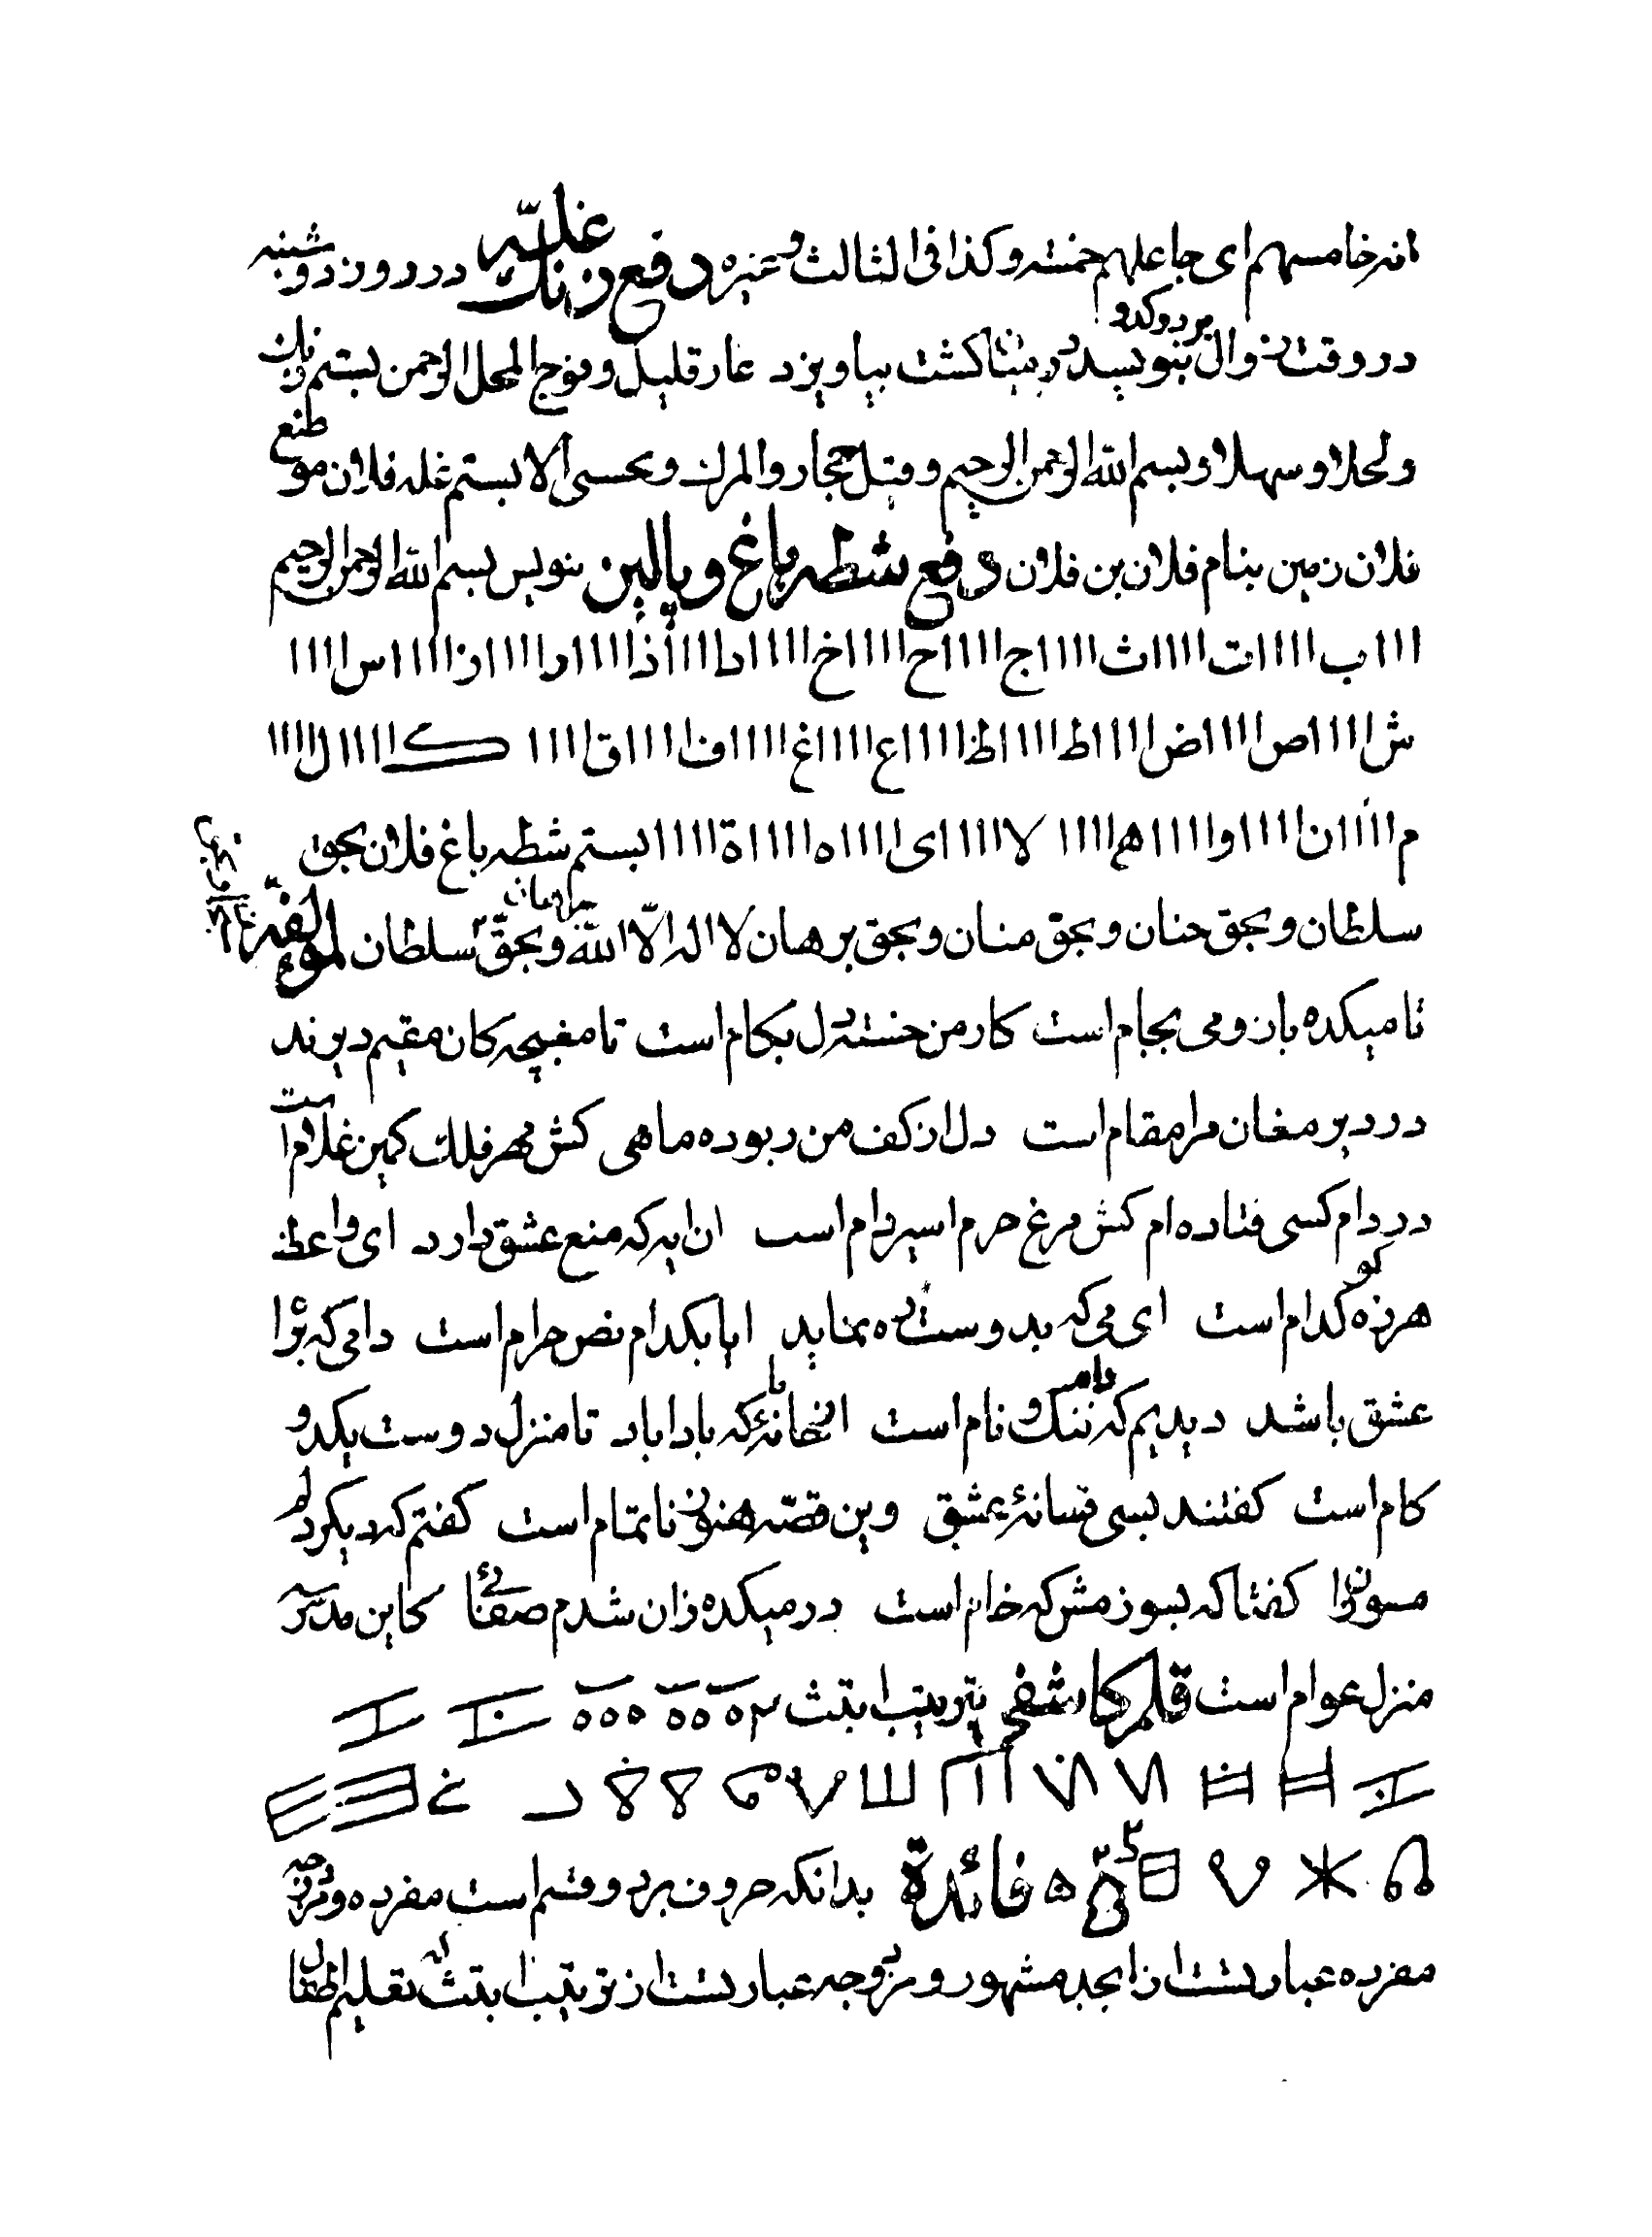 انه خامسهم ای جاعلهم خمسة و کذا فی الثالث و غیره دفع زنک غله در روز دوشنبه
در وقت زوال بنویسد بر دو کدو در میان کشت بیاویزد عار قلیل و فوج المحل الرحمن بستم زنک
و لحلا و سهلا و بسم الله الرحمن الرحیم و قتل حجار و المرک و الا بستم غله فلان موضع
فلان زمین بنام فلان بن فلان دفع شطه باغ و پالین بنویس بسم الله الرحمن الرحیم
ااا ب اااا ت اااا ث اااا ج اااا ح اااا خ اااا د اااا ذ اااا ر اااا ز اااا س اااا
ش اااا ص اااا ض اااا ط اااا ظ اااا ع اااا غ اااا ف اااا ق اااا ک اااا ل اااا
م اااا ن اااا و اااا ه اااا لا اااا ی اااا ه اااا ة اااا بستم شطه باغ فلان بحق
سلطان و بحق حنان و بحق منان و بحق برهان لا اله الّا الله و بحقّ سلطان لمؤلفه
تا میکده باز و می بجام است کار من خسته دل بکام است تا مغبچه کان مقیم دیرند
در دیر مغان مرا مقام است دل از کف من ربوده ماهی کش مهر فلک کمین غلام است
در دام کسی فتاده ام کش مرغ حرم اسیر دام است ان ایه که منع عشق دارد ای واعظ
هرزه کو کدام است ای می که بدوست ره نماید ایا بکدام نص حرام است دامی که برا
عشق باشد دیدیم که ننک و نام است از خانۀ که بادا باد تا منزل دوست یکدو
کام است کفتند بسی فسانۀ عشق وین قصّه هنوز ناتمام است کفتم که دیکر دلم
مسوزان کفتا که بسوزمش که خام است در میکده زان شدم صفائی کاین مدرسه
منزل عوام است قلم کاشفی بترتیب ابتث
فائدة بدانکه حروف بر دو قسم است مفرده و مزوجه
مفرده عبارتست از ابجد مشهور و مزوجه عبارتست از ترتیب ابتث که تعلیم اطفال